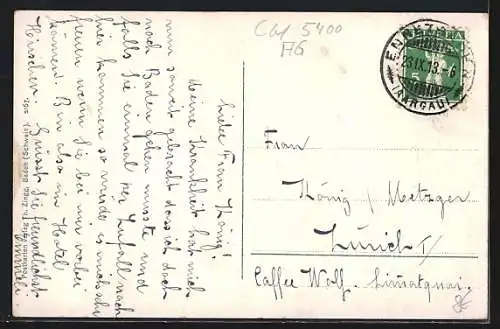 Liebe Frau König!
Meine Krankheit hat mich
nun soweit gebracht dass ich doch
nach Baden gehen musste und
falls Sie einmal per Zufall nach
hier kommen so würde es mich sehr
freuen wenn Sie bei mir vorbei
kämen. Bin also im Hotel
Hirschen. Grüsst Sie freundlichst
Postkarten Verlag Th. Zingg, Baden (Schweiz).
Cbl 5400
AG
HELVETIA
5
ENNETBADEN
23.IX.13.-6
(AARGAU)
Frau
König / Metzger
Zürich I/
Caffee Wolf. Limatquai.
8€